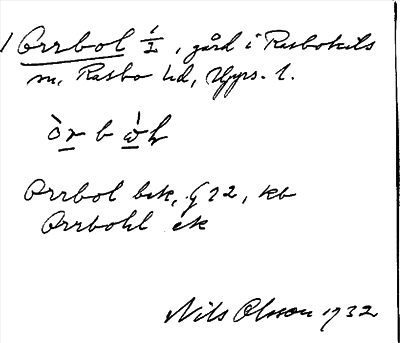 Orrbol 1/2, gård i Rasbokils
sn, Rasbo hd, Upps. l.
òr b ò̱l
Orrbol bek, G 22, kb
Orrbohl ek
Nils Olsson 1932